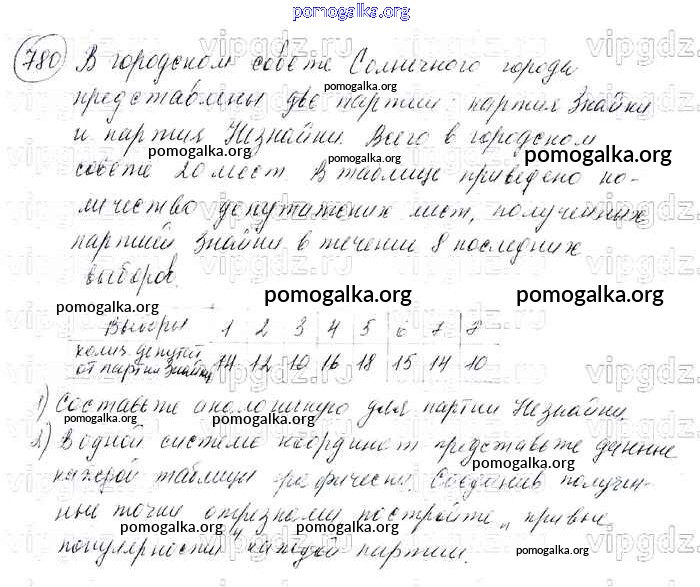 pomogalka.org
780 В городском совете Солнечного города
представлены две партии: партия Знайки
и партия Незнайки. Всего в городском
pomogalka.org pomogalka.org pomogalka.org
совете 20 мест. В таблице приведено ко-
личество депутатских мест, полученных
партией Знайки в течении 8 последних
выборов.
pomogalka.org pomogalka.org pomogalka.org
Выборы 1 2 3 4 5 6 7 8
колич. депутат. от партии Знайки 14 12 10 16 18 15 14 10
1) Составьте аналогичную для партии Незнайки.
pomogalka.org pomogalka.org pomogalka.org
2) В одной системе координат представьте данные
pomogalka.org
каждой таблицы графически. Соединив получен-
ные точки отрезками постройте „кривые
pomogalka.org pomogalka.org pomogalka.org
популярности" каждой партии.